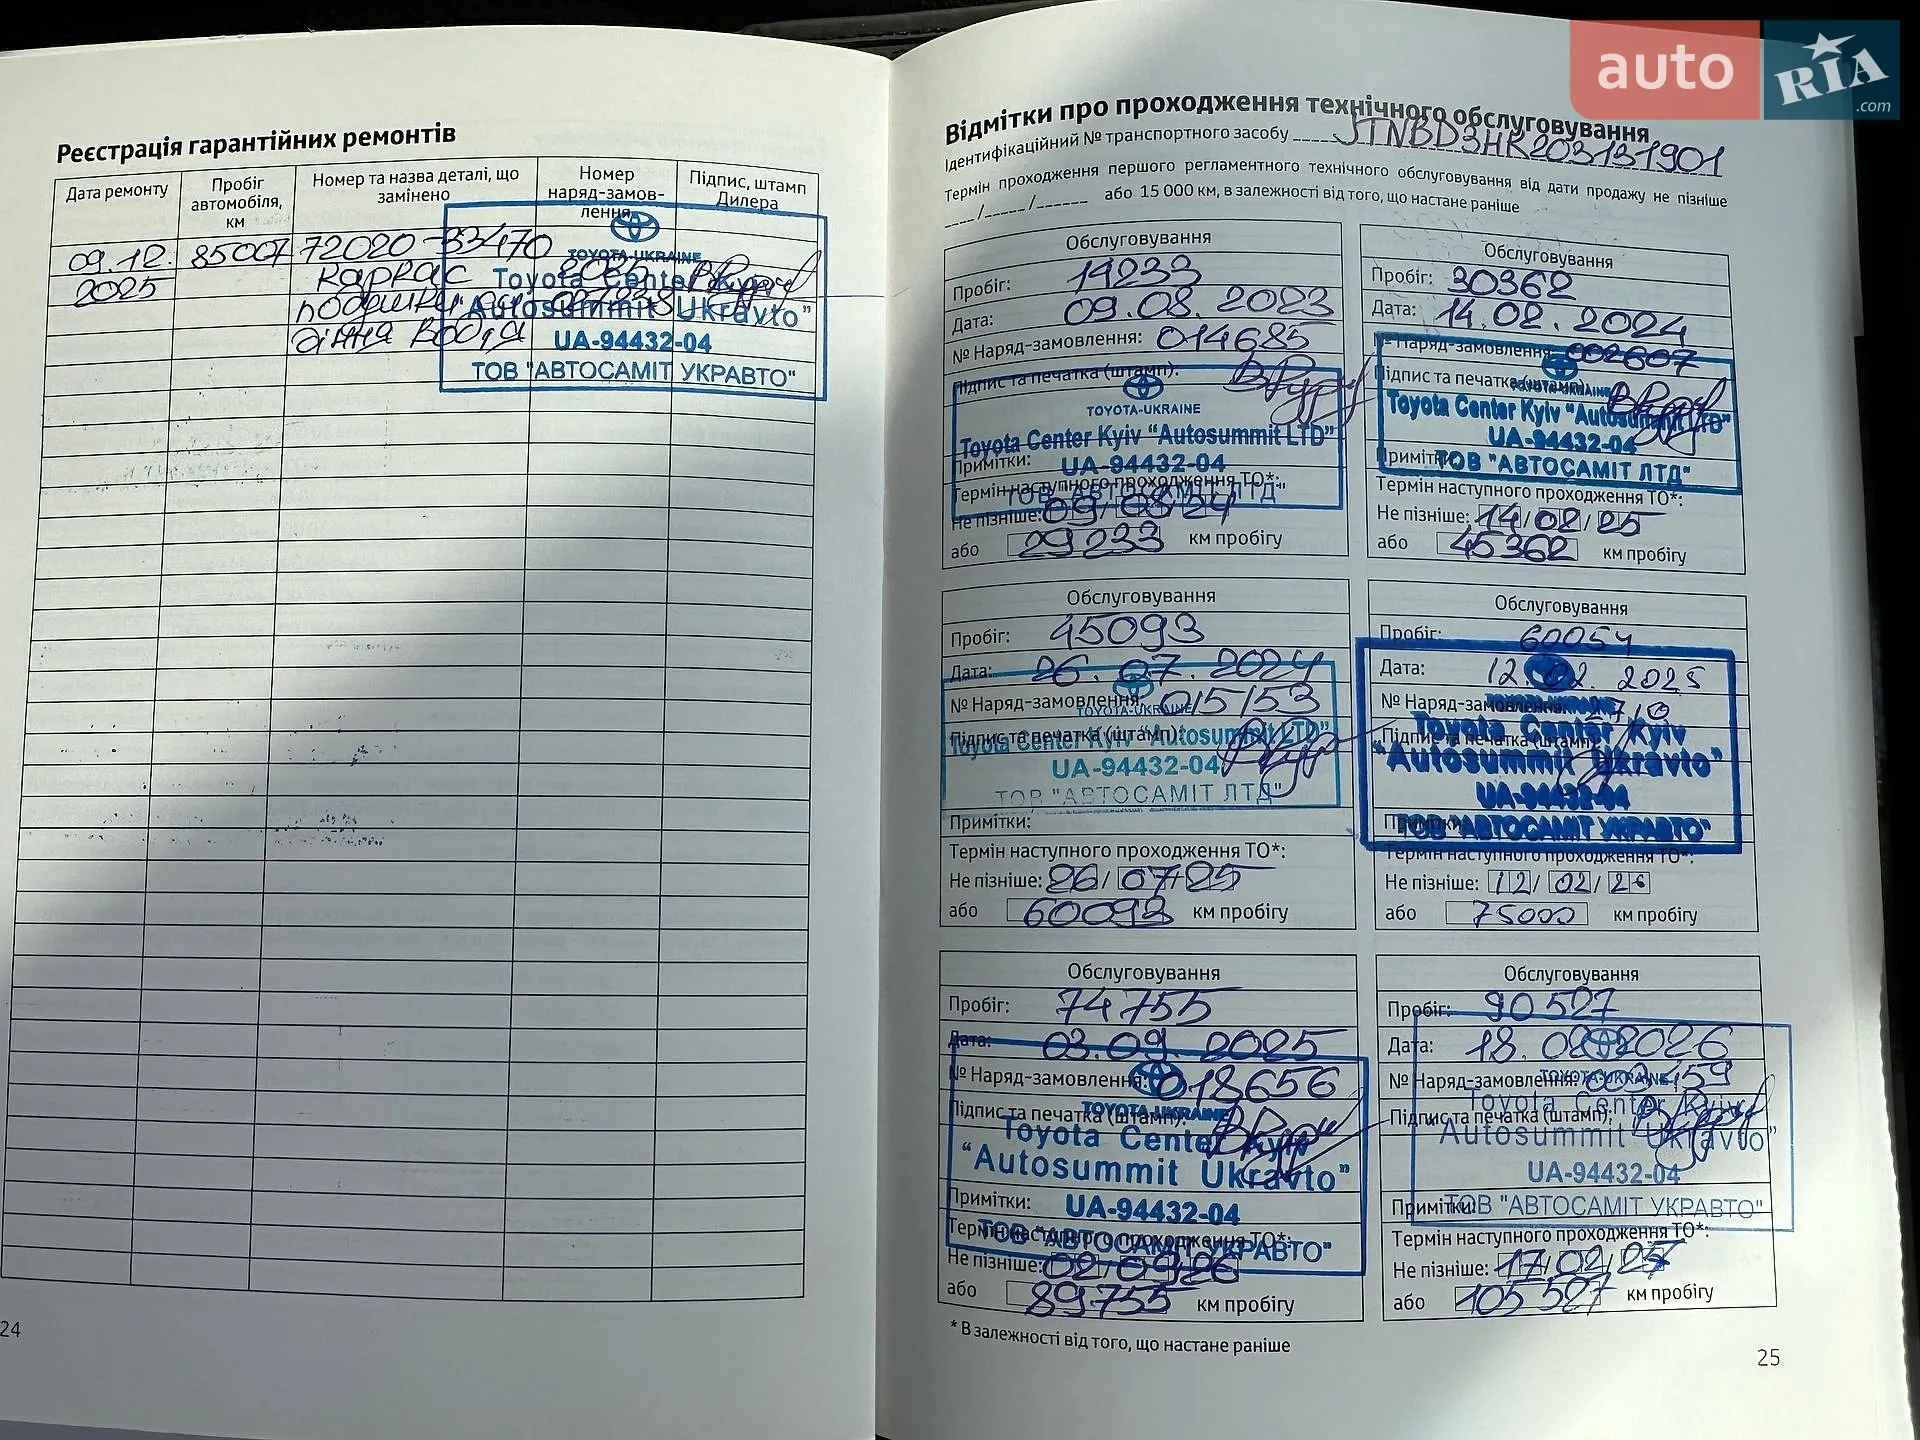 auto RIA .com
Реєстрація гарантійних ремонтів
Дата ремонту
Пробіг автомобіля, км
Номер та назва деталі, що замінено
Номер наряд-замов-лення
Підпис, штамп Дилера
09.12. 2025
85007
72020-33470
каркас
TOYOTA-UKRAINE
Toyota Center Kyiv
"Autosummit Ukravto"
UA-94432-04
ТОВ "АВТОСАМІТ УКРАВТО"
24
Відмітки про проходження технічного обслуговування
Ідентифікаційний № транспортного засобу JTNBD3HK203131901
Термін проходження першого регламентного технічного обслуговування від дати продажу не пізніше
__/__/__ або 15 000 км, в залежності від того, що настане раніше
Обслуговування
Пробіг: 14233
Дата: 09.08.2023
№ Наряд-замовлення: 014685
Підпис та печатка (штамп):
TOYOTA-UKRAINE
Toyota Center Kyiv "Autosummit LTD"
UA-94432-04
ТОВ "АВТОСАМІТ ЛТД"
Примітки:
Термін наступного проходження ТО*:
Не пізніше: 09/08/24
або 29233 км пробігу
Обслуговування
Пробіг: 30362
Дата: 14.02.2024
№ Наряд-замовлення: 002607
Підпис та печатка (штамп):
TOYOTA-UKRAINE
Toyota Center Kyiv "Autosummit LTD"
UA-94432-04
ТОВ "АВТОСАМІТ ЛТД"
Примітки:
Термін наступного проходження ТО*:
Не пізніше: 14/02/25
або 45362 км пробігу
Обслуговування
Пробіг: 45093
Дата: 26.07.2024
№ Наряд-замовлення: 015153
Підпис та печатка (штамп):
TOYOTA-UKRAINE
Toyota Center Kyiv "Autosummit LTD"
UA-94432-04
ТОВ "АВТОСАМІТ ЛТД"
Примітки:
Термін наступного проходження ТО*:
Не пізніше: 26/07/25
або 60093 км пробігу
Обслуговування
Пробіг: 60054
Дата: 12.02.2025
№ Наряд-замовлення: 2710
Підпис та печатка (штамп):
Toyota Center Kyiv
"Autosummit Ukravto"
UA-94432-04
ТОВ "АВТОСАМІТ УКРАВТО"
Примітки:
Термін наступного проходження ТО*:
Не пізніше: 12/02/26
або 75000 км пробігу
Обслуговування
Пробіг: 74755
Дата: 03.09.2025
№ Наряд-замовлення: 018656
Підпис та печатка (штамп):
TOYOTA-UKRAINE
Toyota Center Kyiv
"Autosummit Ukravto"
UA-94432-04
ТОВ "АВТОСАМІТ УКРАВТО"
Примітки:
Термін наступного проходження ТО*:
Не пізніше: 02/09/26
або 89755 км пробігу
Обслуговування
Пробіг: 90527
Дата: 18.02.2026
№ Наряд-замовлення:
Підпис та печатка (штамп):
TOYOTA-UKRAINE
Toyota Center Kyiv
"Autosummit Ukravto"
UA-94432-04
ТОВ "АВТОСАМІТ УКРАВТО"
Примітки:
Термін наступного проходження ТО*:
Не пізніше: 17/02/27
або 105527 км пробігу
* В залежності від того, що настане раніше
25